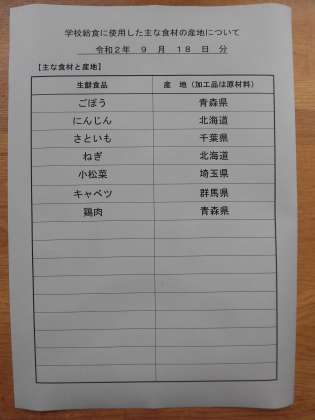 学校給食に使用した主な食材の産地について
令和2年 9 月 18 日 分
【主な食材と産地】
生鮮食品 産 地（加工品は原材料）
ごぼう 青森県
にんじん 北海道
さといも 千葉県
ねぎ 北海道
小松菜 埼玉県
キャベツ 群馬県
鶏肉 青森県